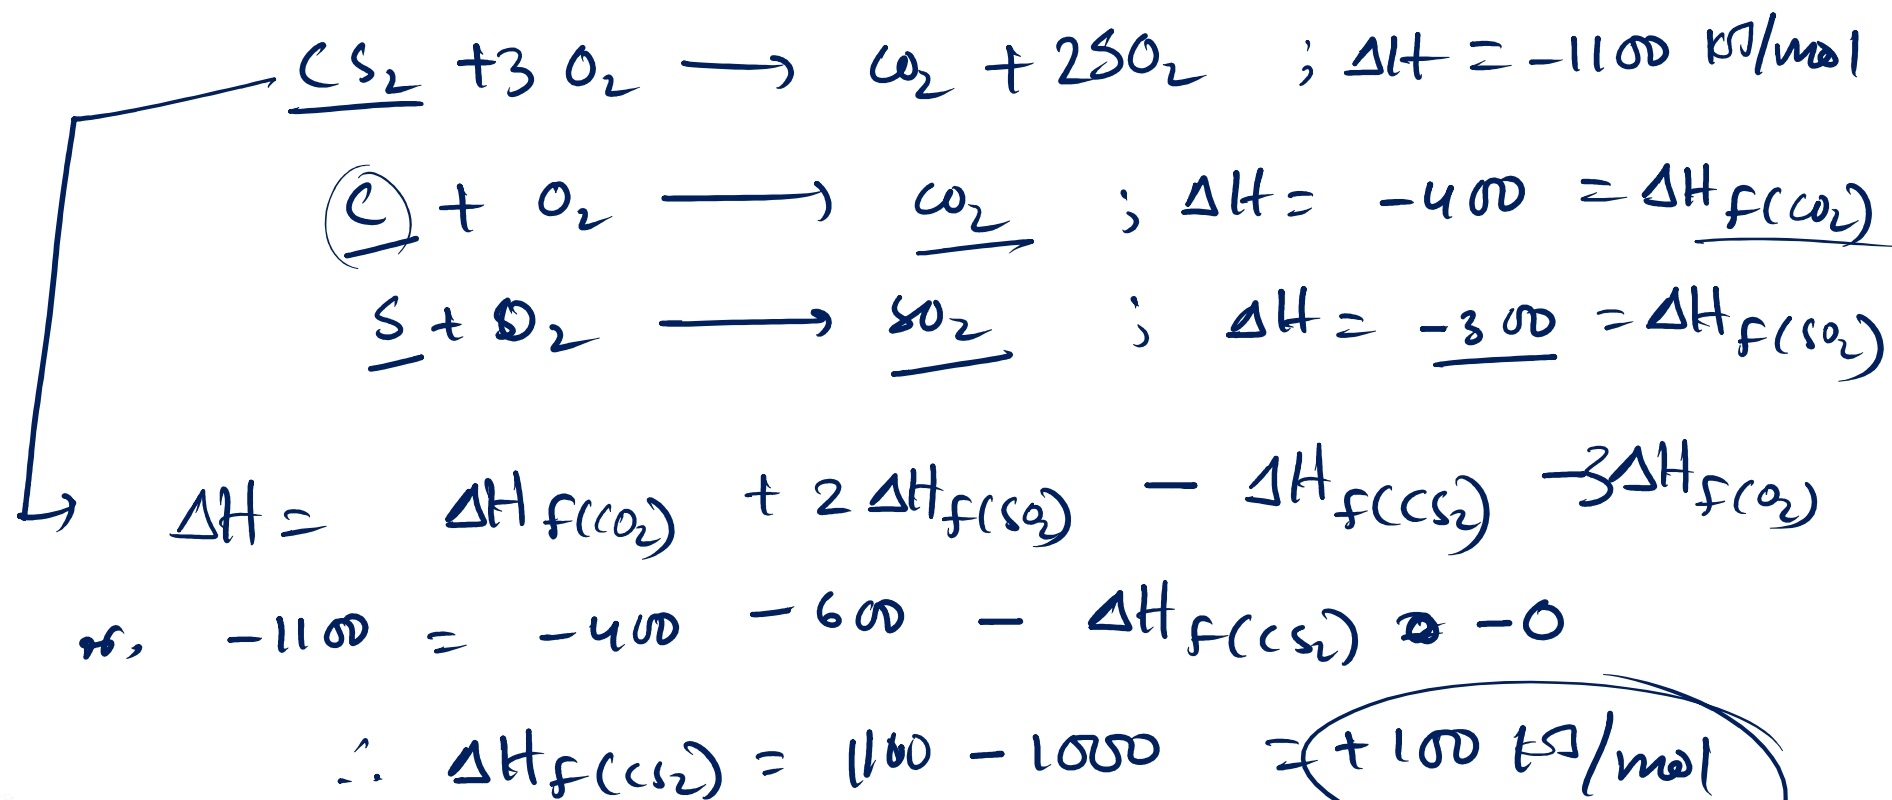 CS₂ + 3 O₂ ⟶ CO₂ + 2SO₂ ; ΔH = -1100 kJ/mol
C + O₂ ⟶ CO₂ ; ΔH = -400 = ΔH f(CO₂)
S + O₂ ⟶ SO₂ ; ΔH = -300 = ΔH f(SO₂)
ΔH = ΔH f(CO₂) + 2 ΔH f(SO₂) - ΔH f(CS₂) - 3ΔH f(O₂)
or, -1100 = -400 - 600 - ΔH f(CS₂) - 0
∴ ΔH f(CS₂) = 1100 - 1000 = +100 kJ/mol